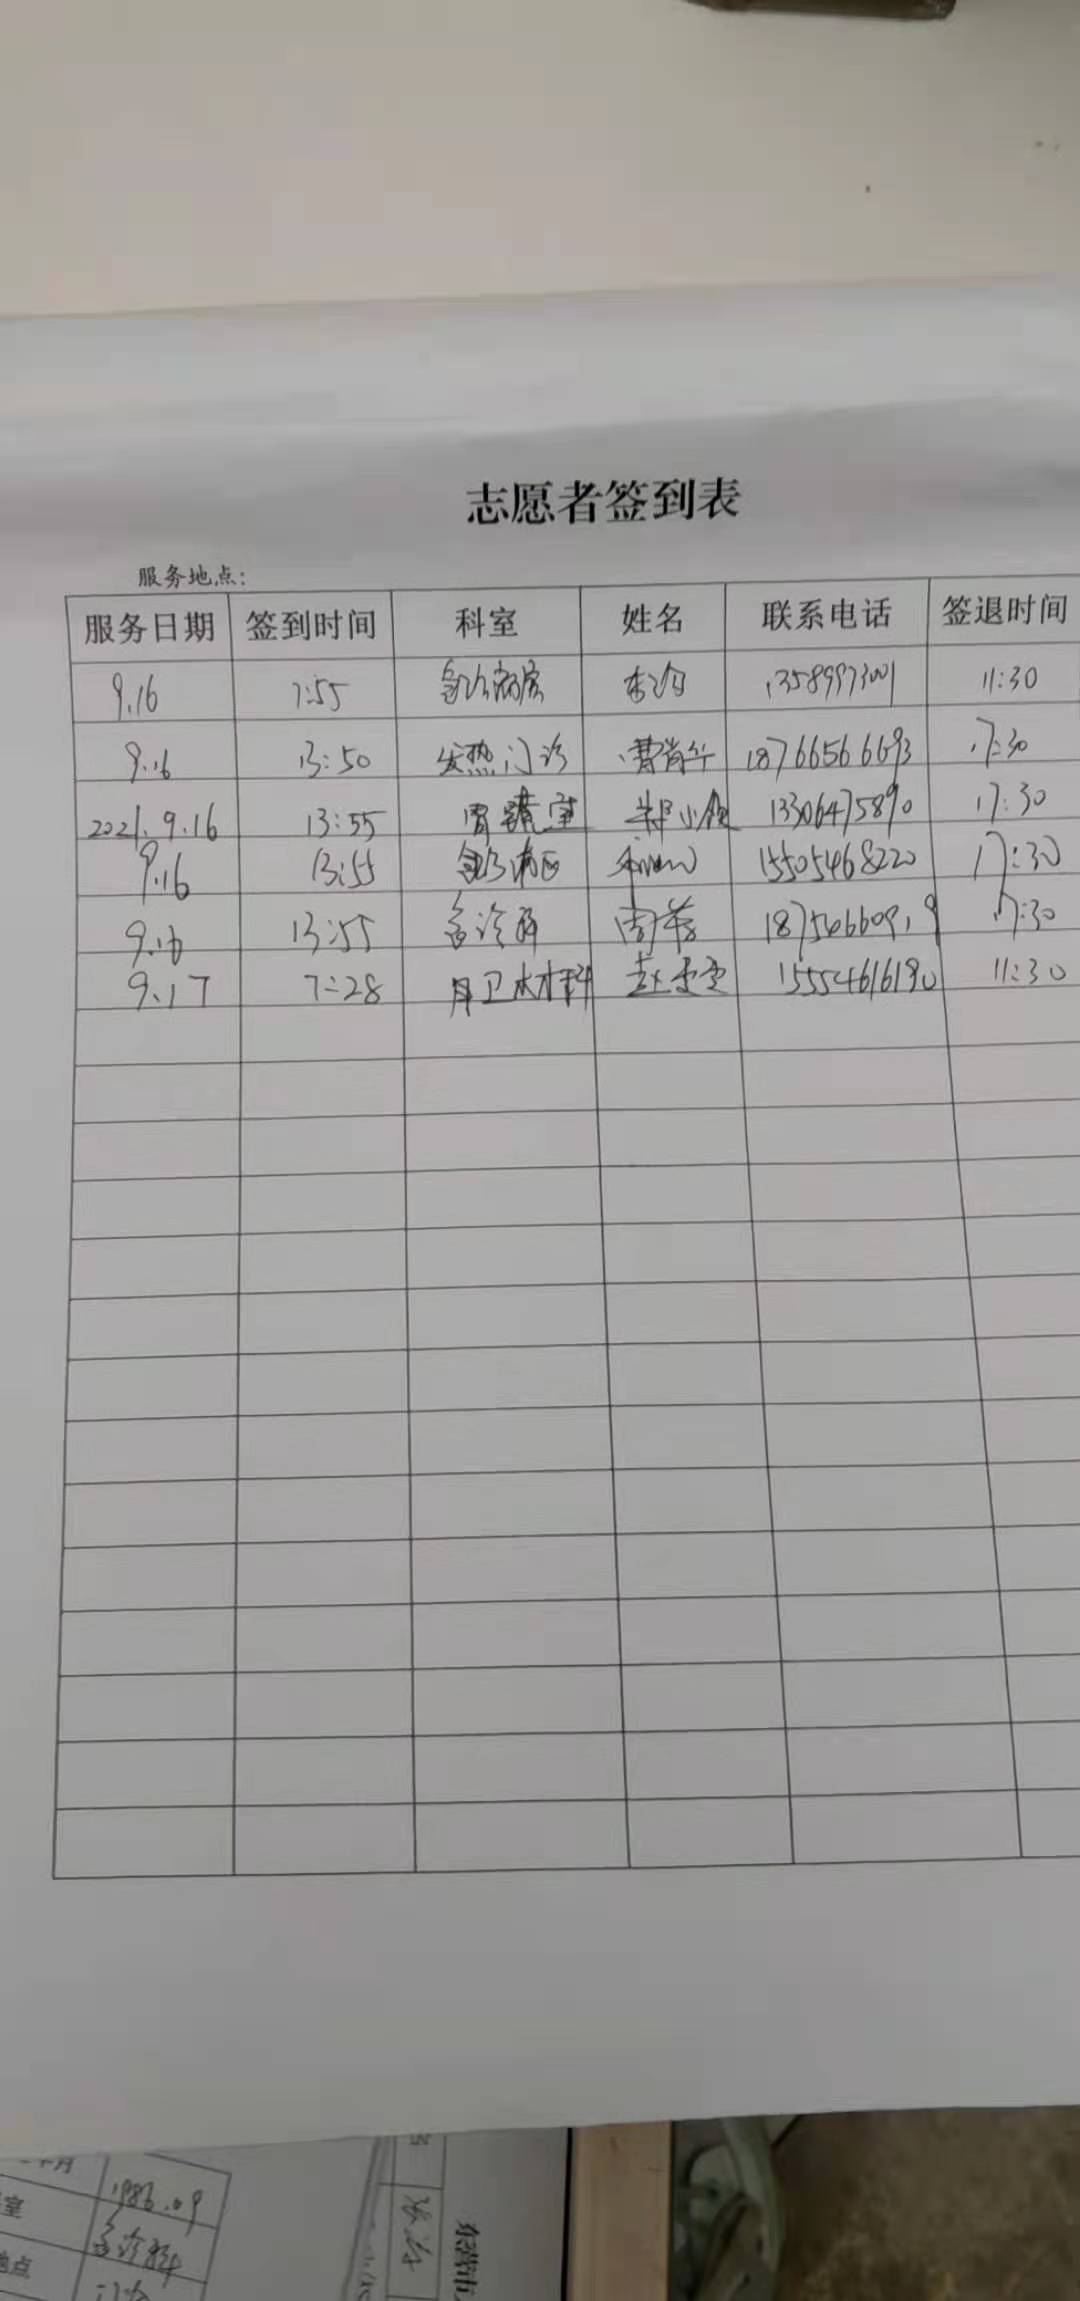 志愿者签到表
服务地点：
服务日期 签到时间 科室 姓名 联系电话 签退时间
9.16 7:55 急诊病房 李 13589973001 11:30
9.16 13:50 发热门诊 曹肖华 18766566693 17:30
2021.9.16 13:55 胃镜室 小 13306475890 17:30
9.16 13:55 15505468220 17:30
9.16 13:55 急诊科 周 17:30
9.17 7:28 卫材料 赵 15554616190 11:30
年月 1986.09
室 急诊科
地点 门诊
东营市